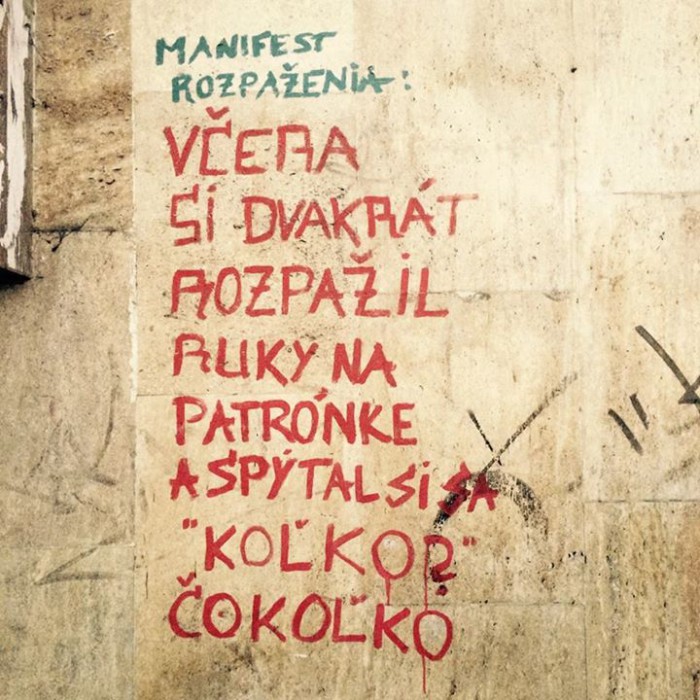 MANIFEST
ROZPAŽENIA:
VČERA
SI DVAKRÁT
ROZPAŽIL
RUKY NA
PATRÓNKE
A SPÝTAL SI SA
"KOĽKO?"
ČOKOĽKO